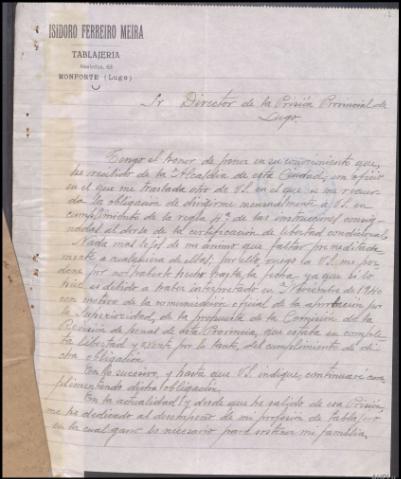 ISIDORO FERREIRO MEIRA
TABLAJERÍA
MONFORTE (Lugo)
Sr. Director de la Prisión Provincial de
Lugo.
Tengo el honor de poner en su conocimiento que,
he recibido de la Alcaldía de esta Ciudad, un oficio
en el que me traslada otro de V.S. en el que se me recuer-
da la obligación de dirigirme mensualmente a V.S. en
cumplimiento de la regla 4ª de las instrucciones consig-
nadas al dorso de la certificación de libertad condicional.
Nada más lejos de mi ánimo que faltar premeditada-
mente a cualquiera de ellas, por ello, ruego a V.S. me per-
done por no haberlo hecho hasta la fecha ya que si lo
hice es debido a haber interpretado en Noviembre de 1940
con motivo de la comunicación oficial de la aprobación por
la Superioridad, de la propuesta de la Comisión de la
Revisión de penas de esta Provincia, que estaba en comple-
ta libertad y exento por lo tanto, del cumplimiento de di-
cha obligación.
En lo sucesivo, y hasta que V.S. indique, continuaré cum-
plimentando dicha obligación.
En la actualidad y desde que he salido de esa Prisión,
me he dedicado al desempeño de mi profesión de tablajero
en la cual gano lo necesario para sostener mi familia.